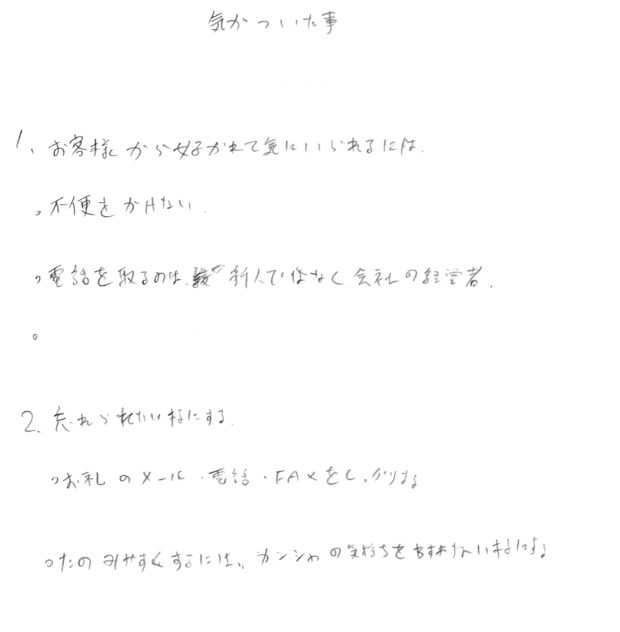 気がついた事
1、お客様から好かれて気にいられるには.
。不便をかけない.
。電話を取るのは、新人ではなく会社の経営者.
。
2. 忘れられたい様にする.
。お礼のメール・電話・FAXをしっかりする
。たのみやすくするには、カンシャの気持ちをわすれない様にする